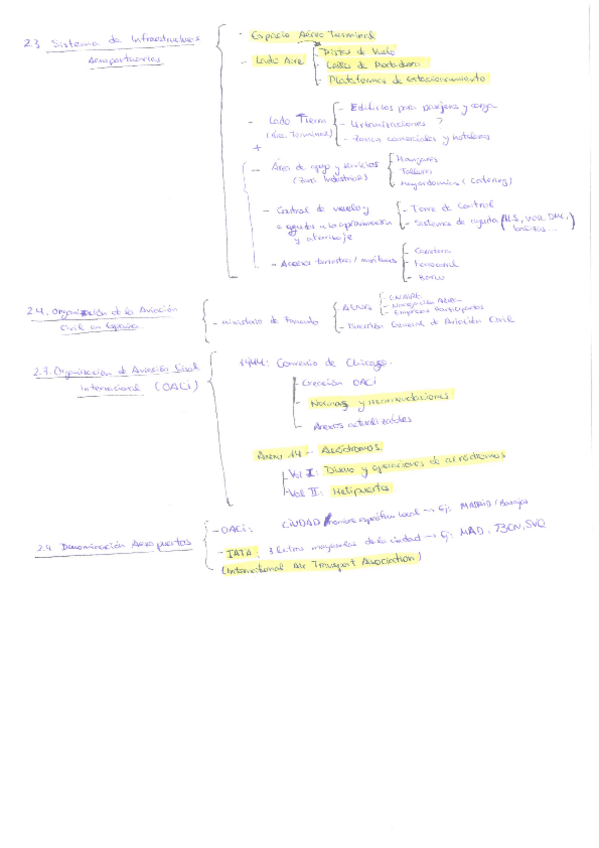 2.3 Sistema de Infraestructuras Aeroportuarias
- Espacio Aéreo Terminal
- Lado Aire
- Pistas de Vuelo
- Calles de Rodadura
- Plataformas de Estacionamiento
- Lado Tierra (Área Terminal)
- Edificios para pasajeros y carga
- Urbanizaciones ?
- Zonas comerciales y hoteleras
+
- Área de apoyo y servicios (Zona Industrial)
- Hangares
- Talleres
- Mayordomías (Catering)
- Control de vuelo y ayudas a la aproximación y aterrizaje
- Torre de Control
- Sistemas de ayuda (ILS, VOR, DME, balizas...)
- Accesos terrestres / marítimos
- Carretera
- Ferrocarril
- Barco
2.4. Organización de la Aviación Civil en España
- Ministerio de Fomento
- AENA
- ENAIRE
- Navegación Aérea
- Empresas Participadas
- Dirección General de Aviación Civil
2.7. Organización de Aviación Civil Internacional (OACI)
1944: Convenio de Chicago.
- Creación OACI
- Normas y recomendaciones
- Anexos actualizables
Anexo 14 - Aeródromos
- Vol I: Diseño y operaciones de aeródromos
- Vol II: Helipuertos
2.9 Denominación Aeropuertos
- OACI: CIUDAD / nombre específico local → Ej: MADRID / Barajas
- IATA: 3 letras mayúsculas de la ciudad → Ej: MAD, BCN, SVQ
(International Air Transport Association)